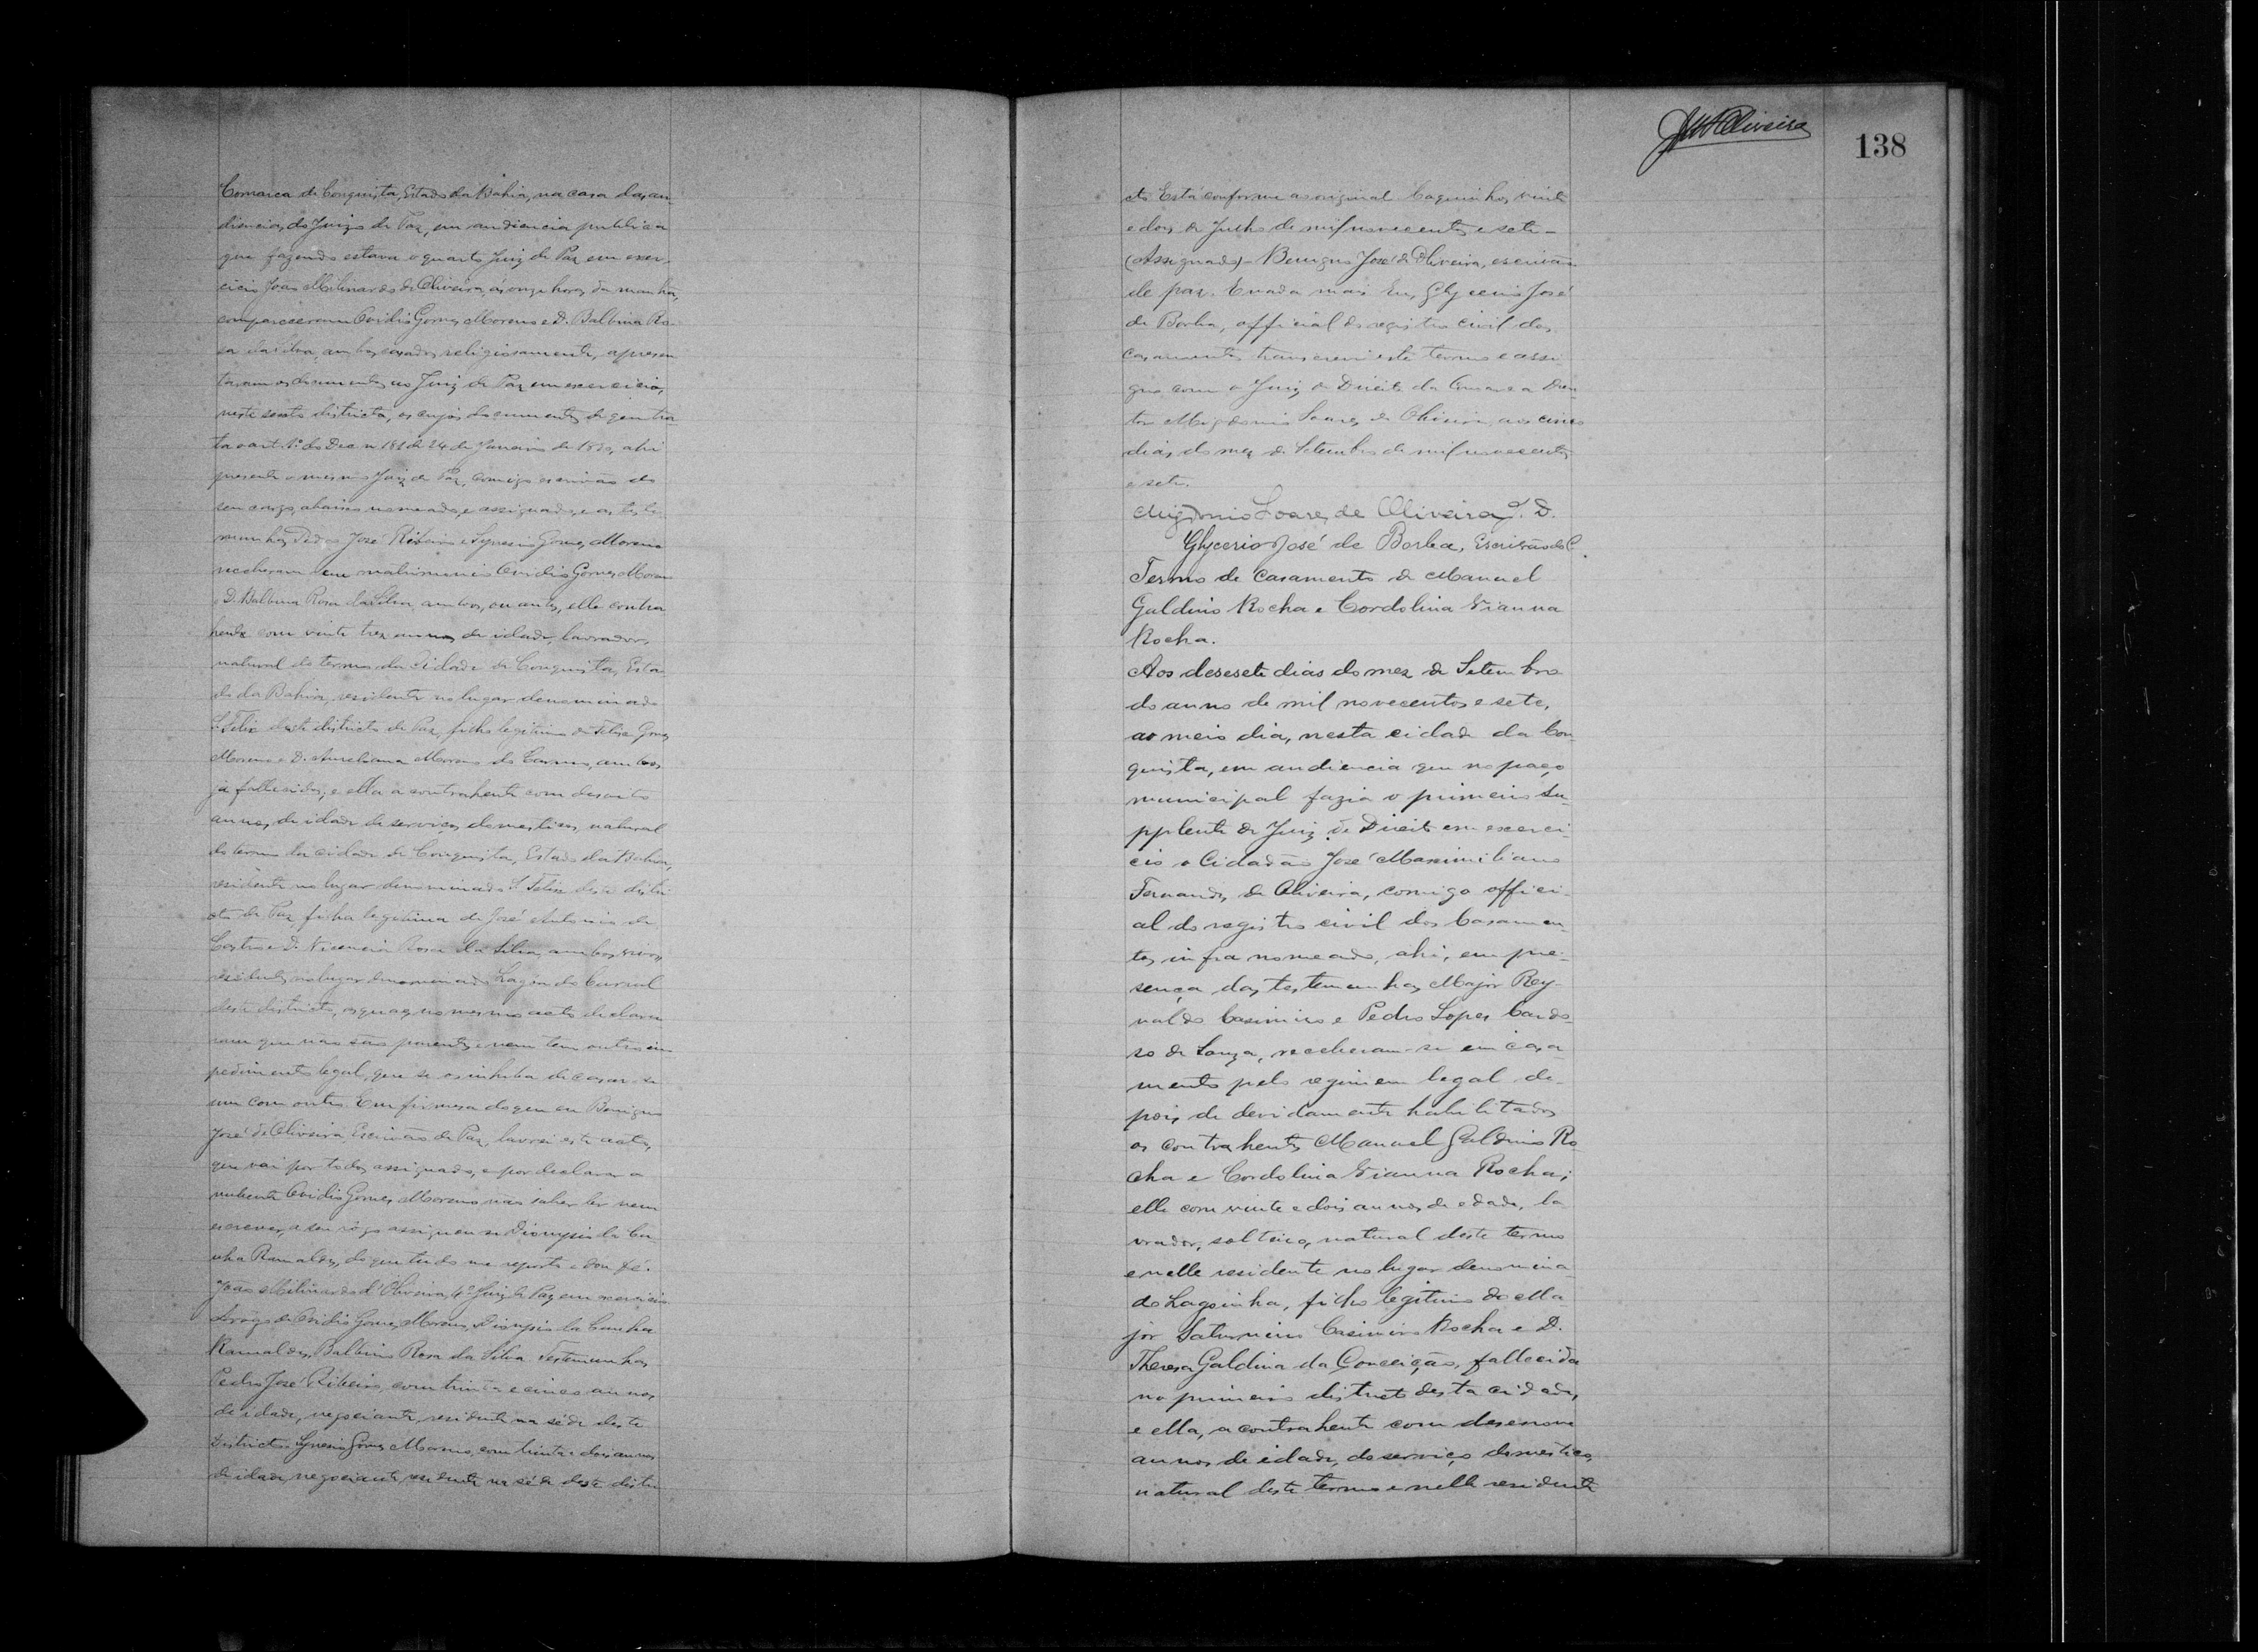 Comarca de Conquista, Estado da Bahia, na casa das au-
diencias do Juizo de Paz, em audiencia publica a
que fazendo estava o quarto Juiz de Paz em exer-
cicio João Melinardo de Oliveira, ás onze horas da manhã,
compareceram Ovidio Gomes Moreno e D. Balbina Ro-
sa da Silva, ambos casados religiosamente, apresen
taram os documentos ao Juiz de Paz em exercicio,
neste sexto districto, os cujos documentos de que tra
ta o art. 1º do Dec. n 181 de 24 de Janeiro de 1890, ahi
presente o mesmo Juiz de Paz, comigo escrivão do
seu cargo, abaixo nomeado, e assignado, e as teste
munhas Pedro José Ribeiro e Synesio Gomes Moreno
receberam em matrimonio Ovidio Gomes Moreno
e D. Balbina Rosa da Silva, ambos, elle contra
hente com vinte tres annos de idade, lavrador,
natural do termo da Cidade de Conquista, Esta
do da Bahia, residente no lugar denominado
S. Felix deste districto de Paz, filho legitimo de Felix Gomes
Moreno e D. Aureliana Moreno do Carmo, ambos
já fallecidos; e ella a contrahente com desoito
annos de idade de serviços domesticos, natural
do termo da cidade de Conquista, Estado da Bahia,
residente no lugar denominado S. Felix deste distri
cto de Paz, filha legitima de José Antonio de
Castro e D. Vicencia Rosa da Silva, ambos vivos
residentes no lugar denominado Lagôa do Curral
deste districto, os quaes no mesmo acto declara
ram que não são parentes e nem tem outro im
pedimento legal, que se os inhiba de casar-se
um com outro. Em firmesa do que eu Benigno
José de Oliveira, Escrivão de Paz, lavrei este acto,
que vai por todos assignado, e por declarar o
nubente Ovidio Gomes Moreno não saber ler nem
escrever, a seu rôgo assignou-se Dionysio da Cu
nha Ramaldes, do que tudo me reporto e dou fé.
João Melinardo d'Oliveira, 4º Juiz de Paz em exercicio
A rôgo de Ovidio Gomes Moreno, Dionysio da Cunha
Ramaldes, Balbina Rosa da Silva Testemunhas
Pedro José Ribeiro, com trinta e cinco annos
de idade, negociante, residente na séde deste
districto. Synesio Gomes Moreno, com trinta e dois annos
de idade, negociante, residente na séde deste distri
138
cto. Está conforme ao original. Caquinhos, vinte
e dois de Julho de mil novecentos e sete -
(Assignado) - Benigno José de Oliveira, escrivão
de paz. E nada mais. Eu, Glycerio José
de Borba, official do registro civil dos
casamentos transcrevi este termo e assi
gno com o Juiz de Direito da Comarca Dou
tor Migdonio Soares de Oliveira, aos cinco
dias do mez de Setembro de mil novecentos
e sete.
Migdonio Soares de Oliveira J. D.
Glycerio José de Borba, Escrivão do C.
Termo de Casamento de Manuel
Galdino Rocha e Cordolina Vianna
Rocha.
Aos desesete dias do mez de Setembro
do anno de mil novecentos e sete,
ao meio dia, nesta cidade da Con-
quista, em audiencia que no paço
municipal fazia o primeiro su-
pplente de Juiz de Direito em exerci-
cio o Cidadão José Maximiliano
Fernandes de Oliveira, comigo offici-
al do registro civil dos Casamen-
tos infra nomeado, ahi, em pre-
sença das testemunhas Major Rey-
naldo Casimiro e Pedro Lopes Cardo-
so de Souza, receberam-se em casa-
mento pelo regimem legal de-
pois de devidamente habilitados
os contrahentes Manuel Galdino Ro
cha e Cordolina Vianna Rocha;
elle com vinte e dois annos de edade, la
vrador, solteiro, natural deste termo
e nelle residente no lugar denomina-
do Lagoinha, filho legitimo do Ma-
jor Saturnino Casimiro Rocha e D.
Theresa Galdina da Conceição, fallecida
no primeiro districto desta cidade,
e ella, a contrahente com desenove
annos de idade, do serviço domestico,
natural deste termo e nelle residente